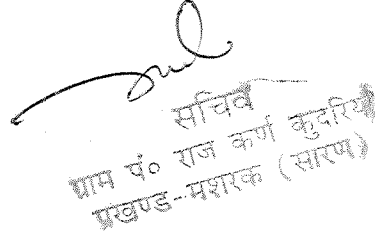 सचिव
ग्राम पं० राज कर्ण कुदरिया
प्रखण्ड--मशरक (सारण)